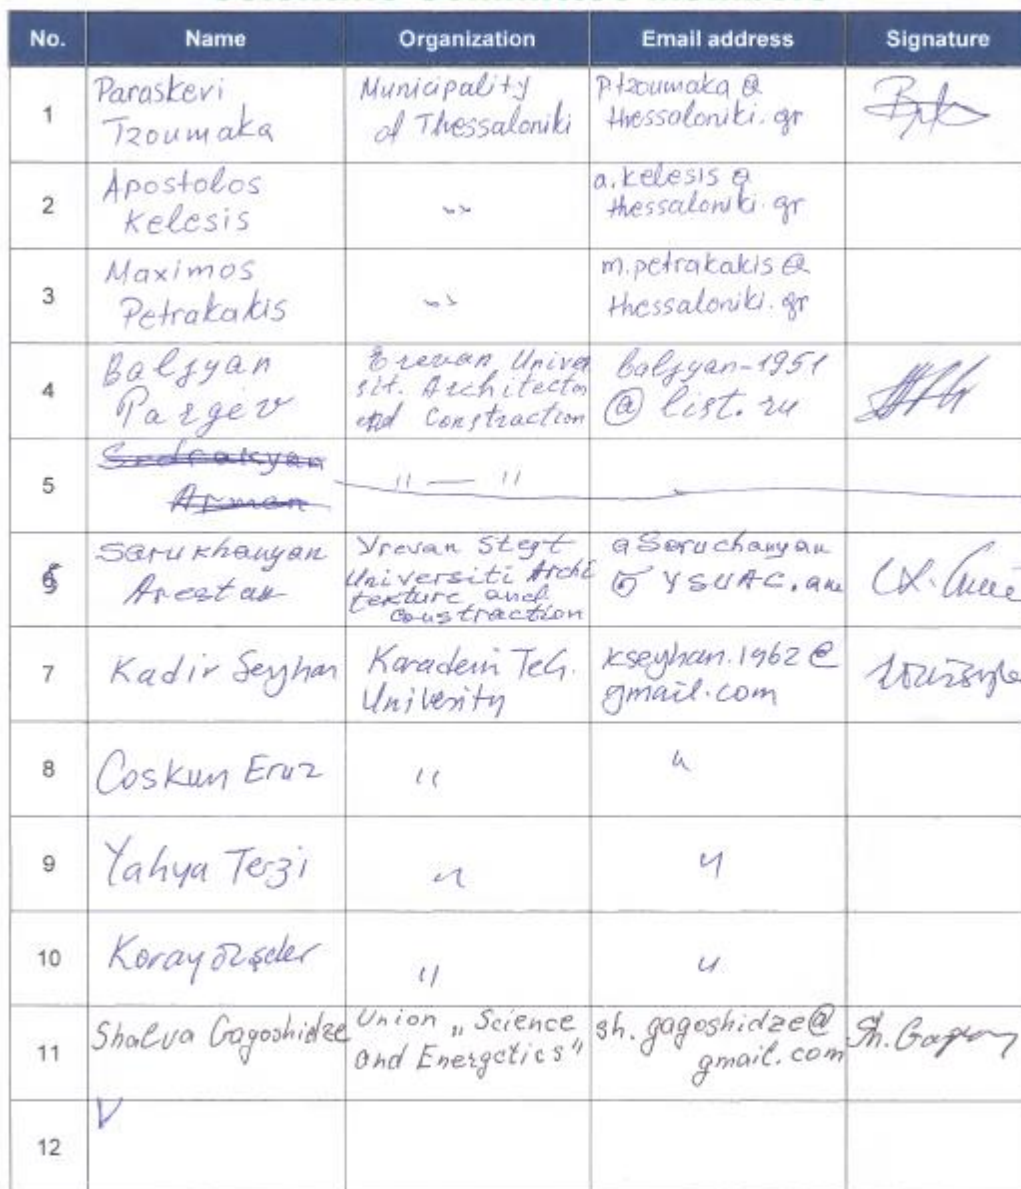 No. Name Organization Email address Signature
1 Paraskevi Tzoumaka Municipality of Thessaloniki p.tzoumaka @ thessaloniki.gr
2 Apostolos Kelesis " a.kelesis @ thessaloniki.gr
3 Maximos Petrakakis " m.petrakakis @ thessaloniki.gr
4 Baljyan Pargev Erevan Univer sit. Architecto and Constraction baljyan-1951 @ list.ru
5 Sedrakyan Arman " — "
6 Sarukhanyan Arestak Yrevan Universiti Archi texture and Constraction aSaruchanyan @ YSUAC.am
7 Kadir Seyhan Karadeni Teh. University kseyhan.1962@ gmail.com
8 Coskun Eruz " "
9 Yahya Terzi " "
10 Koray Özşeker " "
11 Shalva Gagoshidze Union „Science and Energetics" sh.gagoshidze@ gmail.com Sh. Gagosh
12 V